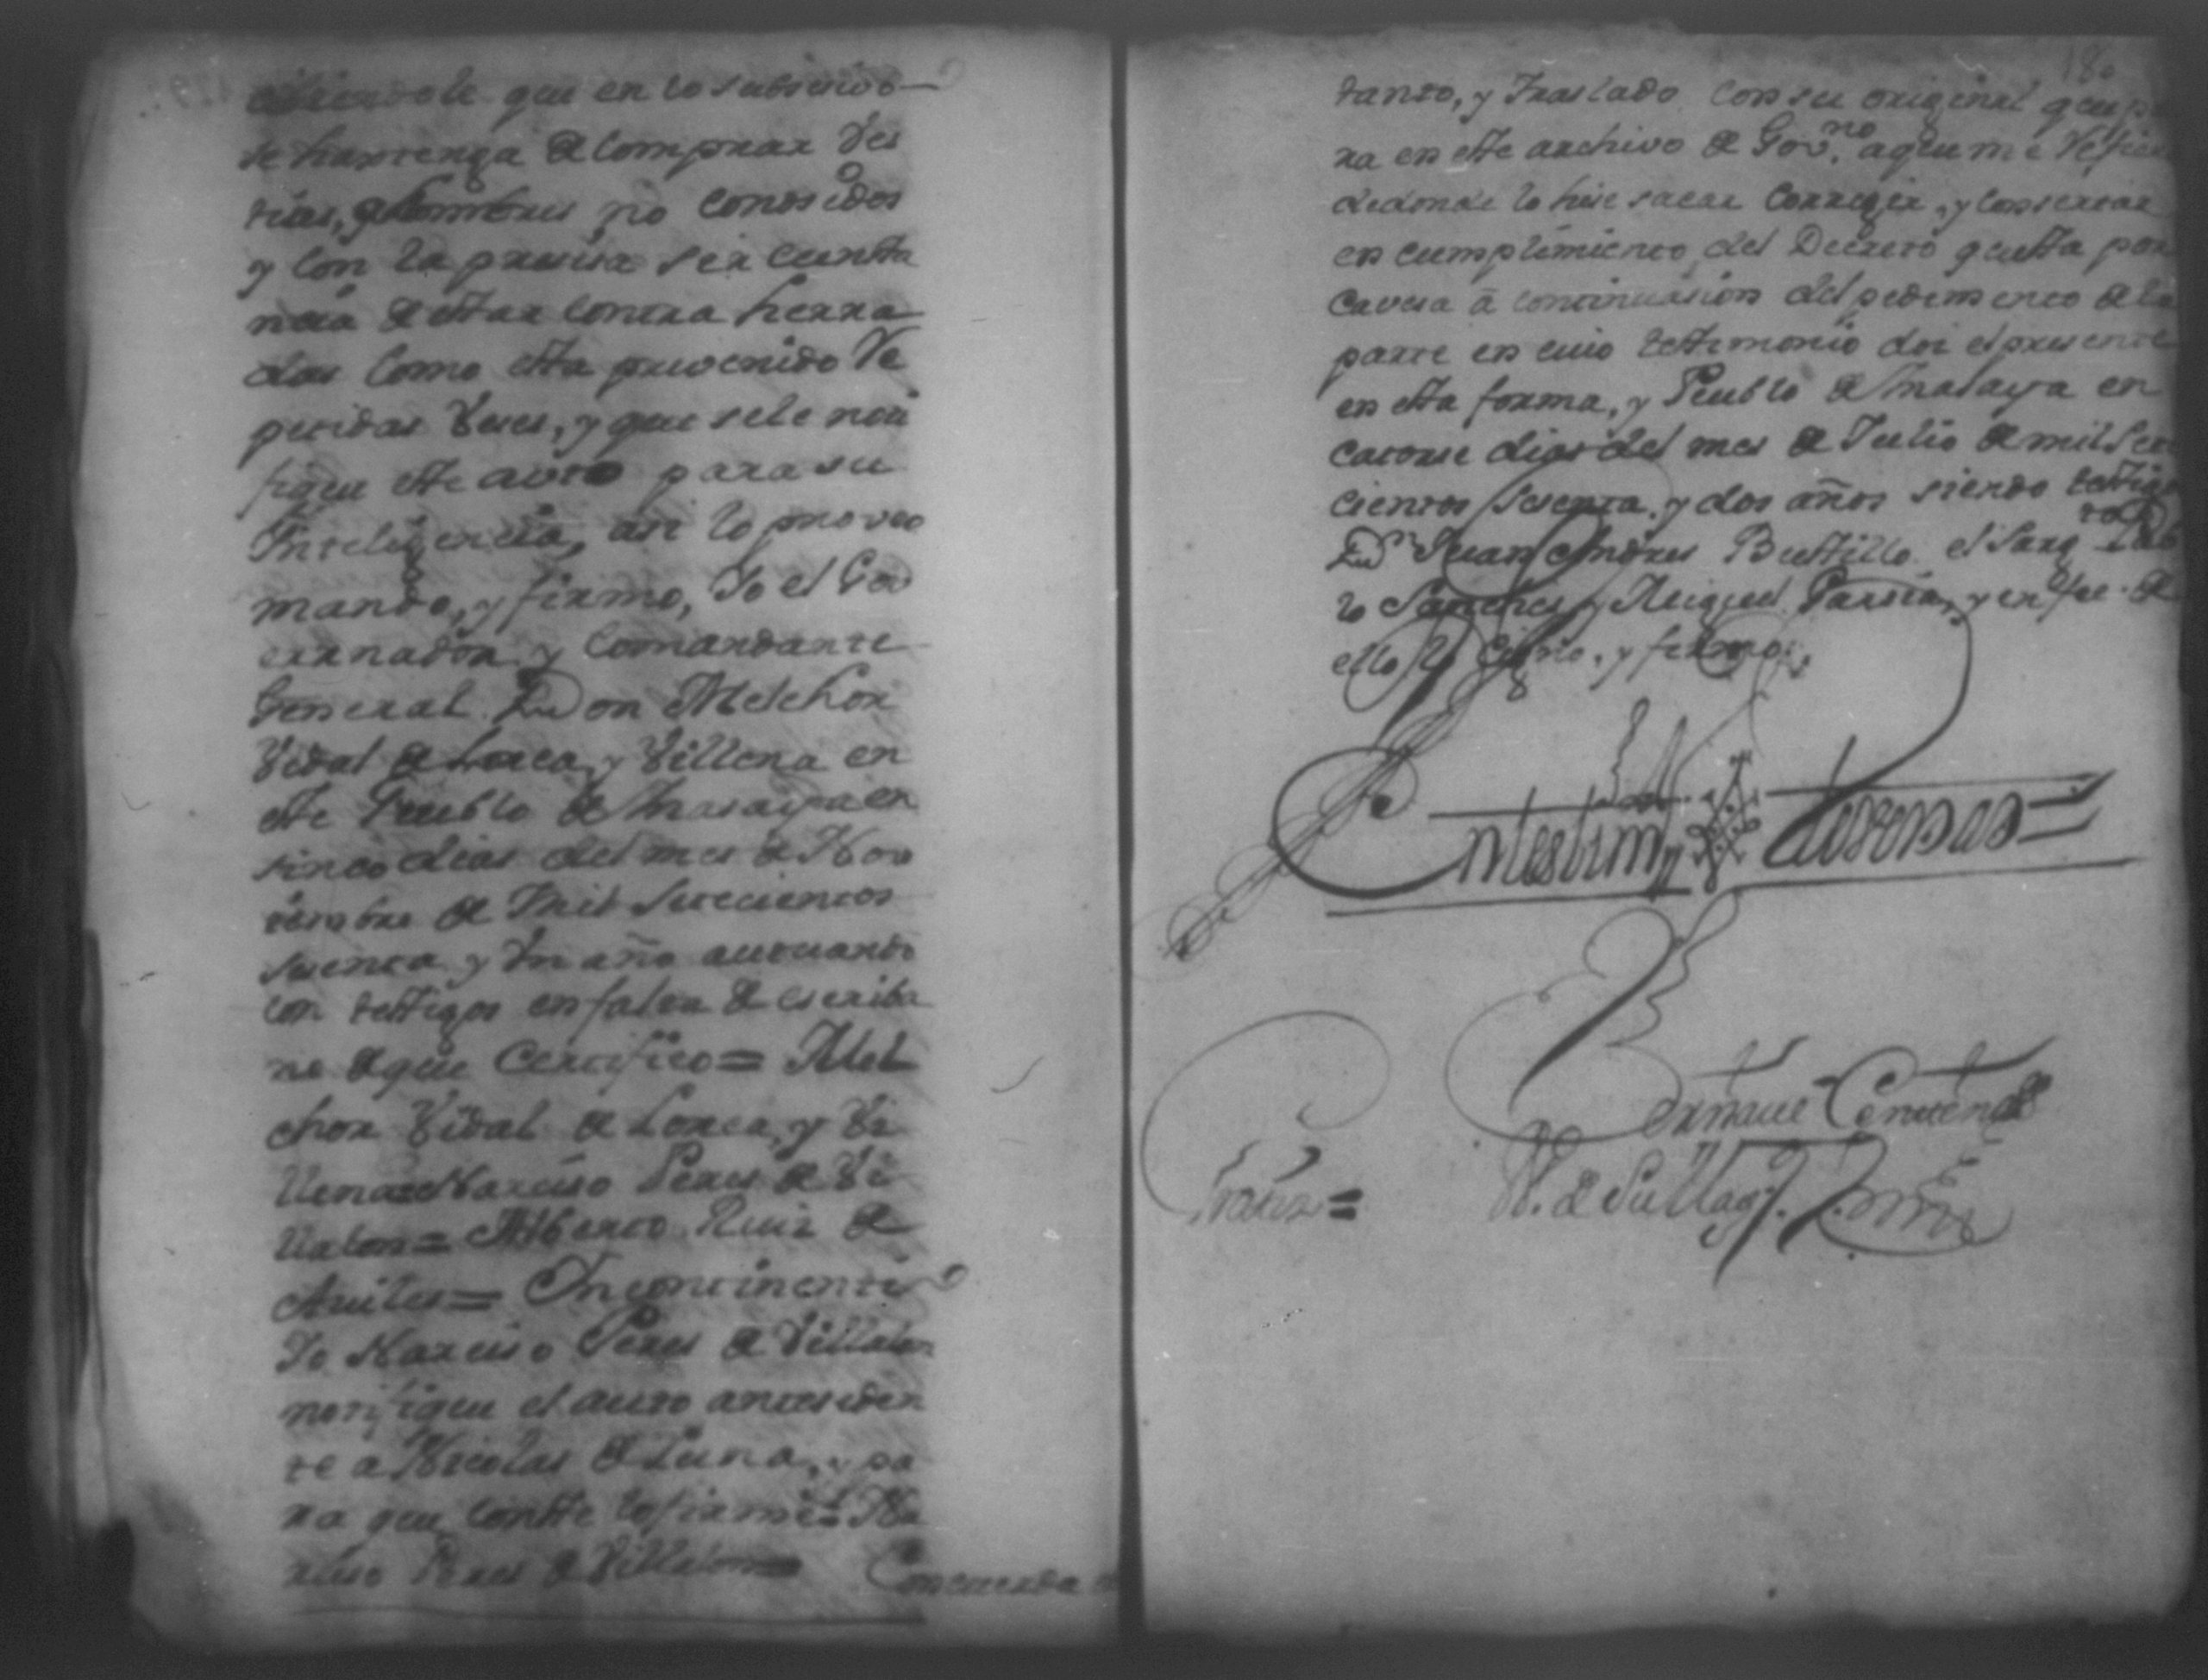 cibiendole que en lo subsesivo
se hantenga de Comprar Ves
tias, a hombres no conosidos
y con la presisa sircunsta
ncia de estar contra herra
das como esta prevenido Re
petidas Veses, y que se le noti
fique este auto para su
Inteligencia, asi lo proveo
mando, y firmo, Yo el Gov
ernador y Comandante
General Don Melchor
Vidal de Lorca, y Villena en
este Pueblo de Masaya en
sinco dias del mes de Nov
iembre de Mil Setecientos
sesenta y Un año actuando
con testigos en falta de escriba
no de que Certifico = Mel
chor Vidal de Lorca, y Vi
llena = Narciso Peres de Vi
llalon = Alberto Ruiz de
Aviles = Yn continenti
Yo Narciso Peres de Villalon
notifique el auto anteseden
te a Nicolas de Luna, y pa
ra que conste lo firmé = Na
rciso Peres de Villalon =
Concuerda
180
tanto, y traslado con su original que pa
ra en este archivo de Gov.no a que me Refiero
de donde lo hise sacar Corregir, y consertar
en cumplimiento del Decreto que esta por
Cavesa a continuasion del pedimento de la
parte en cuio testimonio doi el presente
en esta forma, y Pueblo de Masaya en
catorse dias del mes de Julio de mil Sete
cientos sesenta, y dos años siendo testigos
Dn Juan Andres Bustillo el Sargto Pab
lo Sanches y Miguel Garsia, y en fee de
ello lo Signo, y firmo
En testimo de verdad =
Gratis =
SS. de Su Magd.